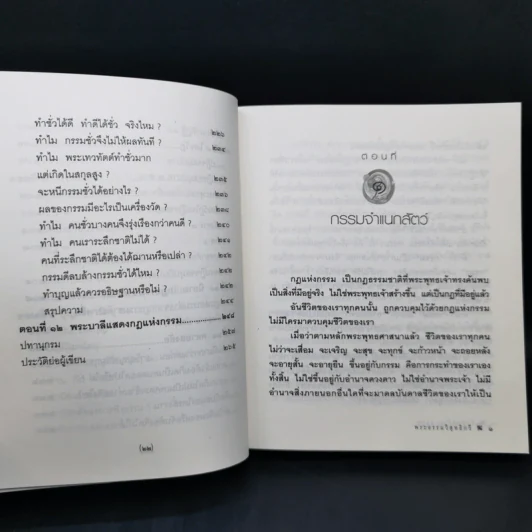 ทำชั่วได้ดี ทำดีได้ชั่ว จริงไหม ?
ทำไม กรรมชั่วจึงไม่ให้ผลทันที ?
ทำไม พระเทวทัตต์ทำชั่วมาก
แต่เกิดในสกุลสูง ? ๒๓๕
จะหนีกรรมชั่วได้อย่างไร ?
ผลของกรรมมีอะไรเป็นเครื่องวัด ?
ทำไม คนชั่วบางคนจึงรุ่งเรืองกว่าคนดี ?
ทำไม คนเราระลึกชาติไม่ได้ ?
คนที่ระลึกชาติได้ต้องได้ฌานหรือเปล่า ?
กรรมดีลบล้างกรรมชั่วได้ไหม ?
ทำบุญแล้วควรอธิษฐานหรือไม่ ?
สรุปความ
ตอนที่ ๑๒ พระบาลีแสดงกฎแห่งกรรม
ปทานุกรม
ประวัติย่อผู้เขียน
(๒๒)
ตอนที่
๑
กรรมจำแนกสัตว์
กฎแห่งกรรม เป็นกฎธรรมชาติที่พระพุทธเจ้าทรงค้นพบ
เป็นสิ่งที่มีอยู่จริง ไม่ใช่พระพุทธเจ้าสร้างขึ้น แต่เป็นกฎที่มีอยู่แล้ว
อันชีวิตของคนเราทุกคนนั้น ถูกควบคุมไว้ด้วยกฎแห่งกรรม
ไม่มีใครมาควบคุมชีวิตของเรา
เมื่อว่าตามหลักพระพุทธศาสนาแล้ว ชีวิตของเราทุกคน
ไม่ว่าจะเสื่อม จะเจริญ จะสุข จะทุกข์ จะก้าวหน้า จะถอยหลัง
จะอายุสั้น จะอายุยืน ขึ้นอยู่กับกรรม คือการกระทำของเราเอง
ทั้งสิ้น ไม่ใช่ขึ้นอยู่กับอำนาจดวงดาว ไม่ใช่อำนาจพระเจ้า ไม่มี
อำนาจสิ่งภายนอกอื่นใดที่จะมาดลบันดาลชีวิตของเราให้เป็น
๑